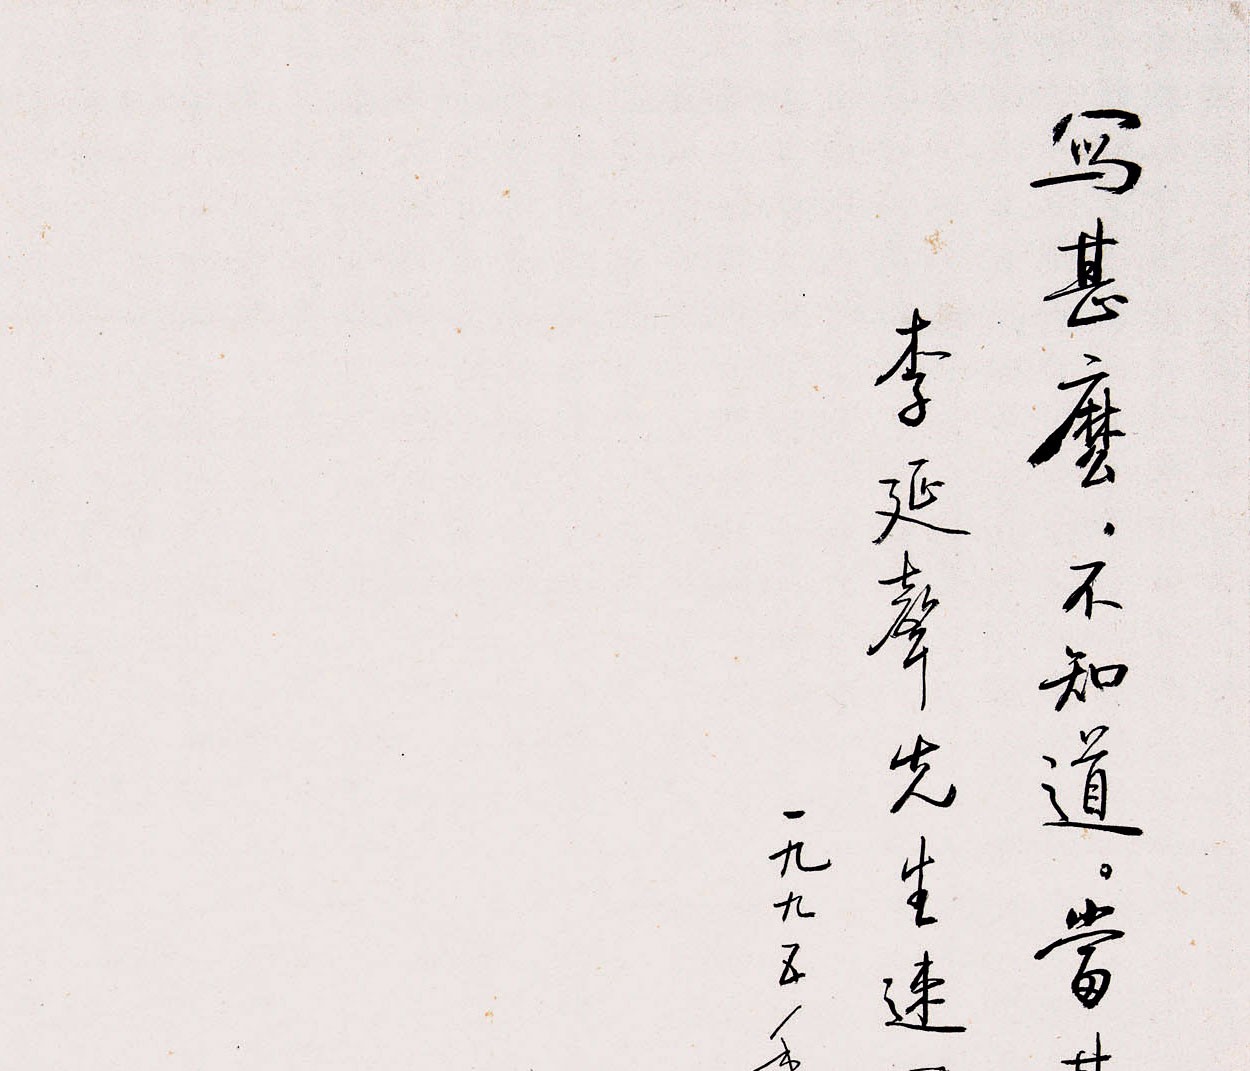 寫甚麼，不知道。當甚
李延聲先生速
一九九五年